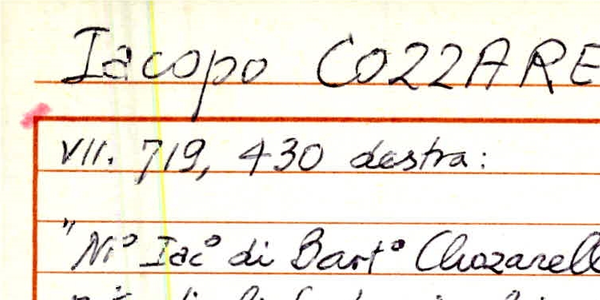 Iacopo COZZARE
VII. 719, 430 destra:
"Niº Iacº di Bartº Chozarell